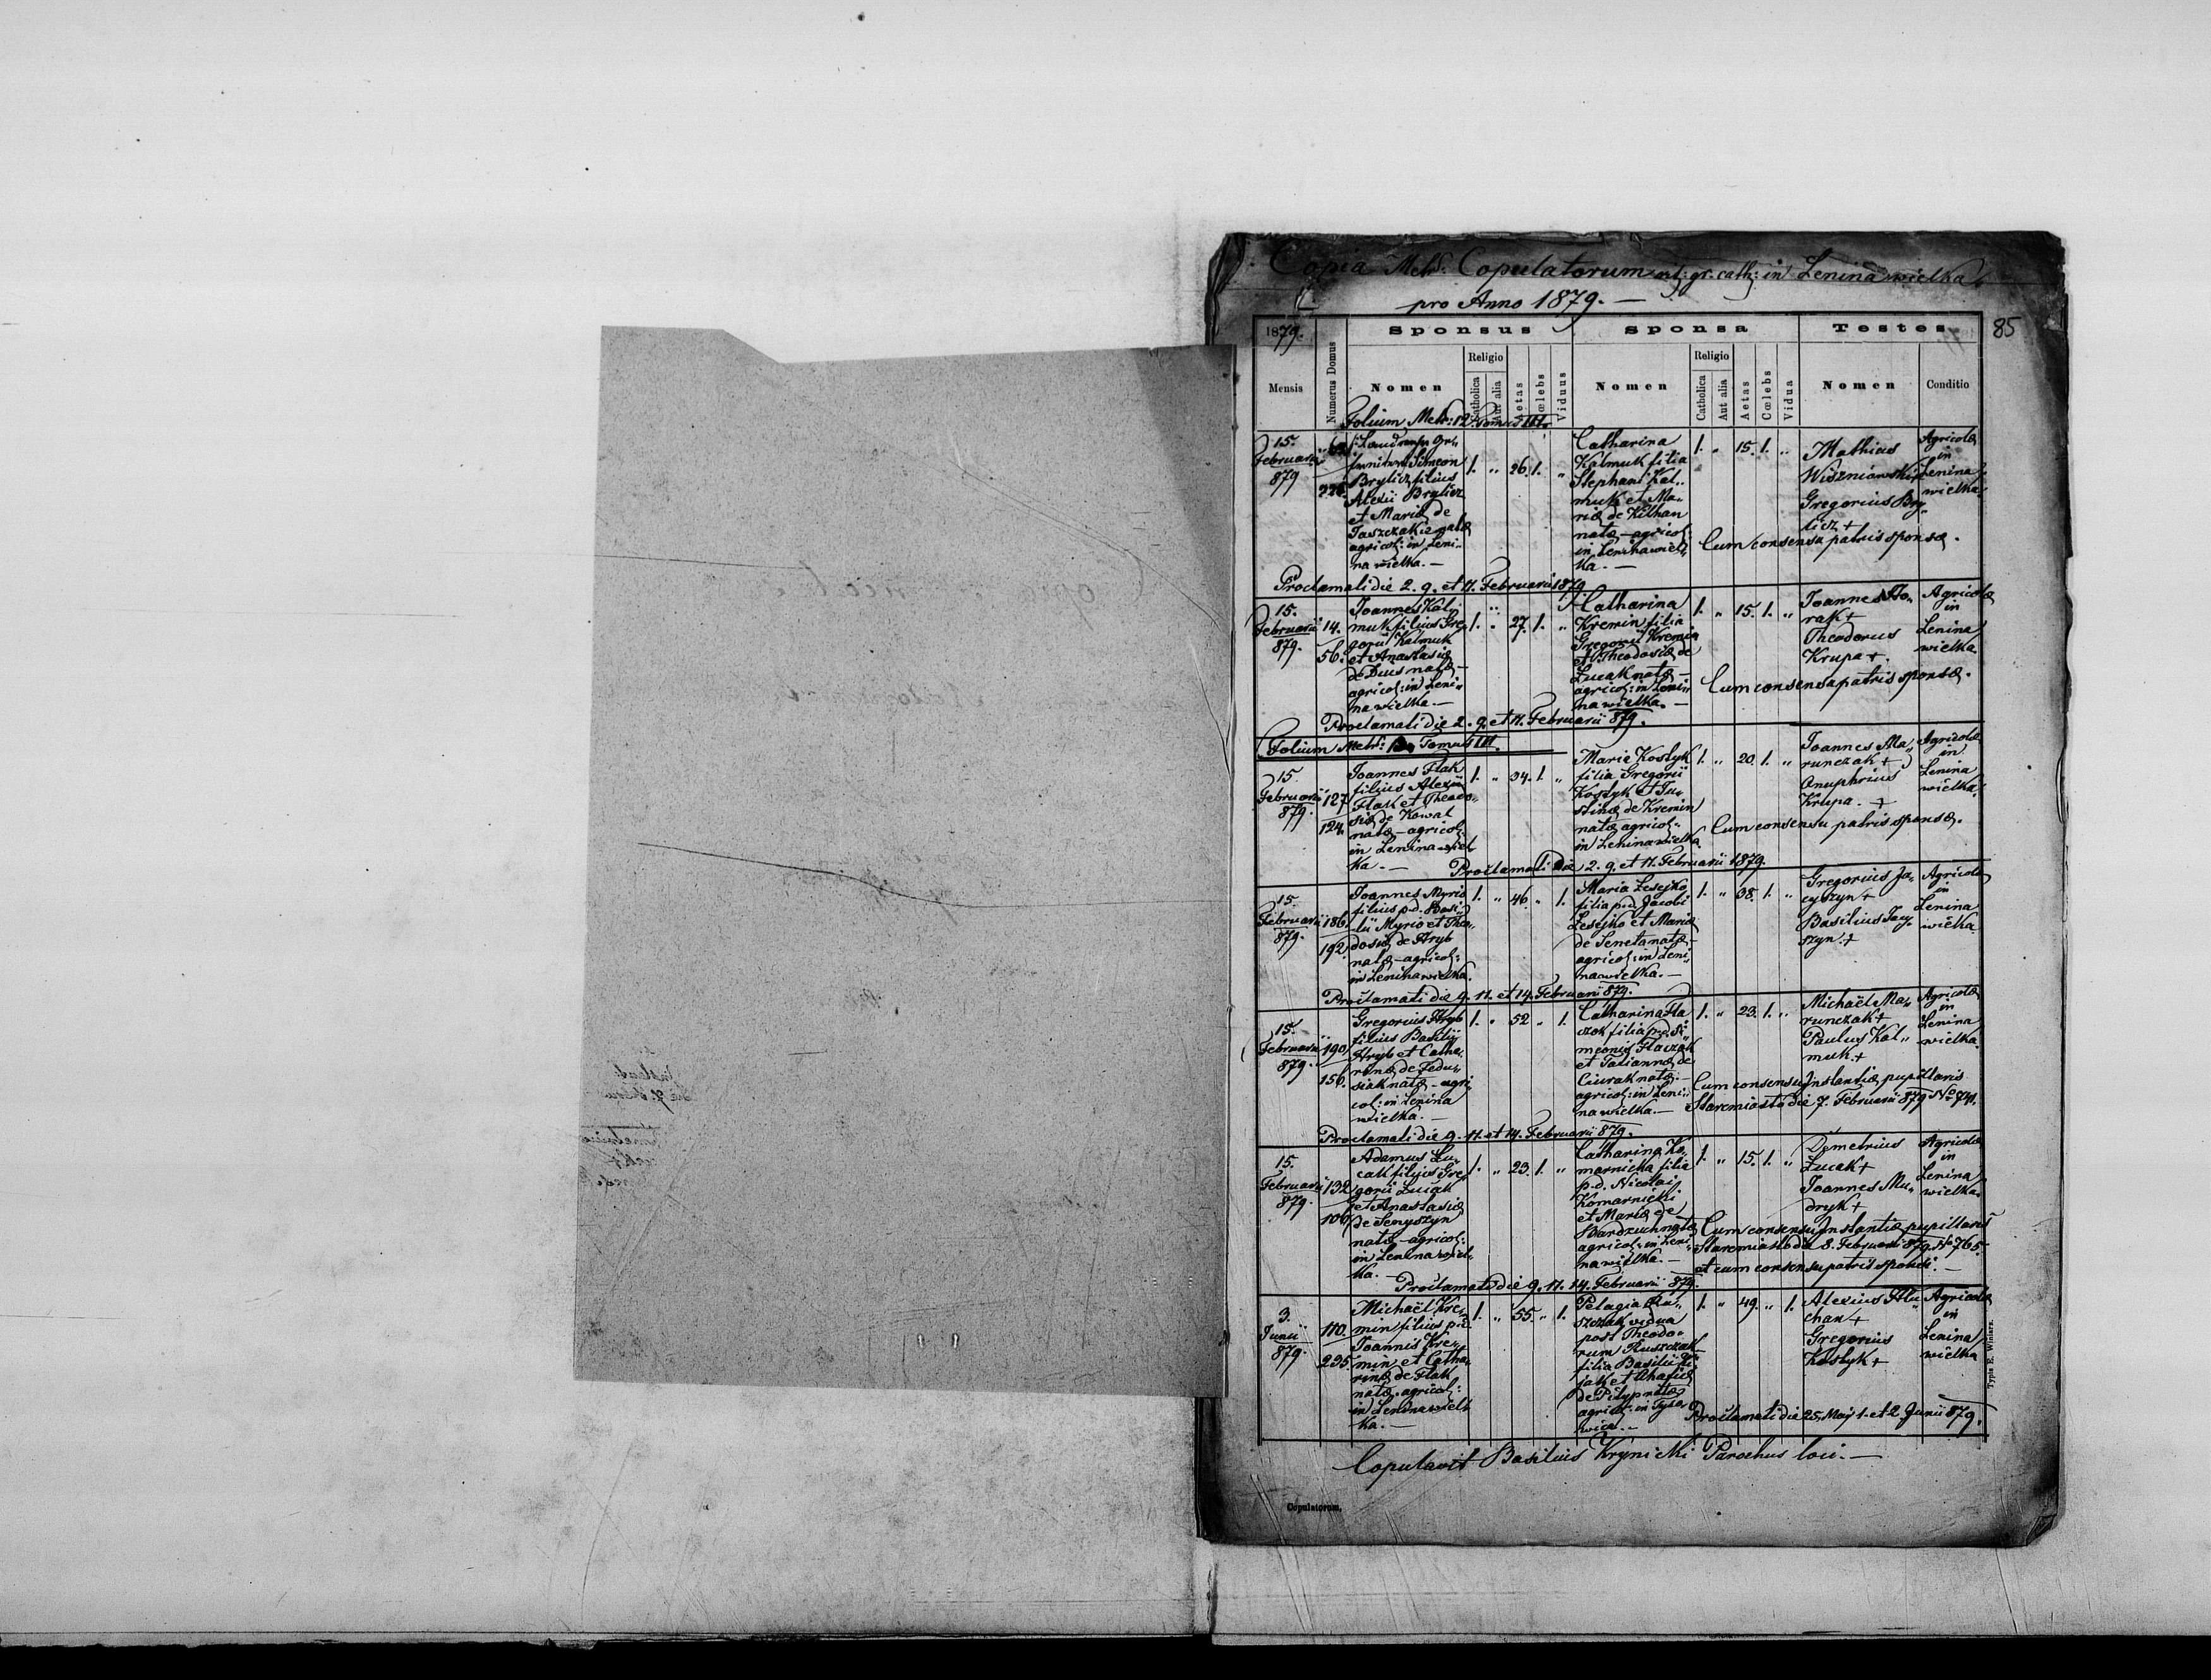 Copia Metr: Copulatorum rit: gr. cath: in Lenina wielka
pro Anno 1879. —
85
1879.
Sponsus
Sponsa
Testes
Mensis
Numerus Domus
Nomen
Religio
Catholica
Aut alia
Aetas
Cœlebs
Viduus
Nomen
Religio
Catholica
Aut alia
Aetas
Cœlebs
Vidua
Nomen
Conditio
Folium Metr: 12. Tomus III.
15.
Februarii
879
Simeon
Brylicz filius
Alexii Brylicz
et Mariæ de
Jaszczak natæ
agricol: in Leni„
na wielka. —
1. „ 26. 1. „
Catharina
Kalmuk filia
Stephani Kal„
muk et Ma„
riæ de Kilhan
natæ – agricol:
in Lenina wiel„
ka. —
1. „ 15. 1. „
Mathias
Wiszniowski +
Gregorius Bry„
licz +
Agricolæ
in
Lenina
wielka.
Cum consensu patris sponsæ.
Proclamati die 2. 9. et 11. Februarii 1879.
15.
Februarii
879.
14.
56.
Joannes Kal„
muk filius Gre„
gorii Kalmuk
et Anastasiæ
de Dus natæ –
agricol: in Leni„
na wielka. —
1. „ 27. 1. „
Catharina
Kremin filia
Gregorii Kremin
et Theodosiæ de
Lucak natæ –
agricol: in Leni„
na wielka. —
1. „ 15. 1. „
Joannes Ho„
rak +
Theodorus
Krupa +.
Agricolæ
in
Lenina
wielka
Cum consensu patris sponsæ.
Proclamati die 2. 9. et 11. Februarii 879.
Folium Metr: Tomus III.
15
Februarii
879.
127
124.
Joannes Flak
filius Alexii
Flak et Theodo„
siæ de Kowal
natæ – agricol:
in Lenina wiel„
ka. —
1. „ 34. 1. „
Maria Kostyk
filia Gregorii
Kostyk et Ju„
stinæ de Kremin
natæ agricol:
in Lenina wielka
1. „ 20. 1. „
Joannes Ma„
runczak +
Onuphrius
Krupa. +
Agricolæ
in
Lenina
wielka.
Cum consensu patris sponsæ.
Proclamati die 2. 9. et 11. Februarii 1879.
15.
Februarii
879.
186.
192.
Joannes Myrio
filius p.d. Basi„
lii Myrio et Theo„
dosiæ de Hryb
natæ – agricol:
in Lenina wielka.
1. „ 46. „ 1.
Maria Lesejko
filia p.d. Jacobi
Lesejko et Mariæ
de Seneta natæ –
agricol: in Leni„
na wielka. —
1. „ 38. 1. „
Gregorius Ja„
cyszyn +
Basilius Jacy„
szyn. +
Agricolæ
in
Lenina
wielka
Proclamati die 9. 11. et 14. Februarii 879.
15.
Februarii
879.
190
156.
Gregorius Hryb
filius Basilii
Hryb et Catha„
rinæ de Fedu„
siak natæ – agri„
col: in Lenina
wielka. —
1. „ 52 „ 1.
Catharina Fla„
czok filia p.d. Si„
meonis Flaczok
et Tatiannæ de
Ciurak natæ –
agricol: in Leni„
na wielka. —
1. „ 23. 1. „
Michaël Ma„
runczak +
Paulus Kal„
muk. +
Agricolæ
in
Lenina
wielka.
Cum consensu Instantiæ pupillaris
Staremiasto die 7. Februarii 879 No 741.
Proclamati die 9. 11. et 14. Februarii 879.
15.
Februarii
879.
132
Adamus Lu„
cak filius Gre„
gorii Lucak
et Anastasiæ
de Senyszyn
natæ – agricol:
in Lenina wiel„
ka. —
1. „ 23. 1. „
Catharina Ko„
marnicka filia
p.d. Nicolai
Komarnicki
et Mariæ de
natæ
agricol: in Leni„
na wielka. —
1. „ 15. 1. „
Demetrius
Lucak +
Joannes Mu„
dryk +
Agricolæ
in
Lenina
wielka.
Cum consensu Instantiæ pupillaris
Staremiasto die 8. Februarii 879. No 765.
et cum consensu patris sponsi. —
Proclamati die 9. 11. 14. Februarii 879.
3.
Junii
879.
110.
235.
Michaël Kre„
min filius p.d.
Joannis Kre„
min et Catha„
rinæ de Flak
natæ agricol:
in Lenina wiel„
ka. —
1. „ 55. „ 1.
Pelagia Ru„
szczak vidua
post Theodo„
rum Ruszczak
filia Basilii
et
de Pilyp natæ
agricol: in Tyso„
wica. —
1. „ 49. „ 1.
Alexius Hlu„
chan +
Gregorius
Kostyk +
Agricolæ
in
Lenina
wielka
Proclamati die 25. Maj 1. et 2. Junii 879.
Copulavit Basilius Krynicki Parochus loci. —
Copulatorum.
Typis E. Winiarz.